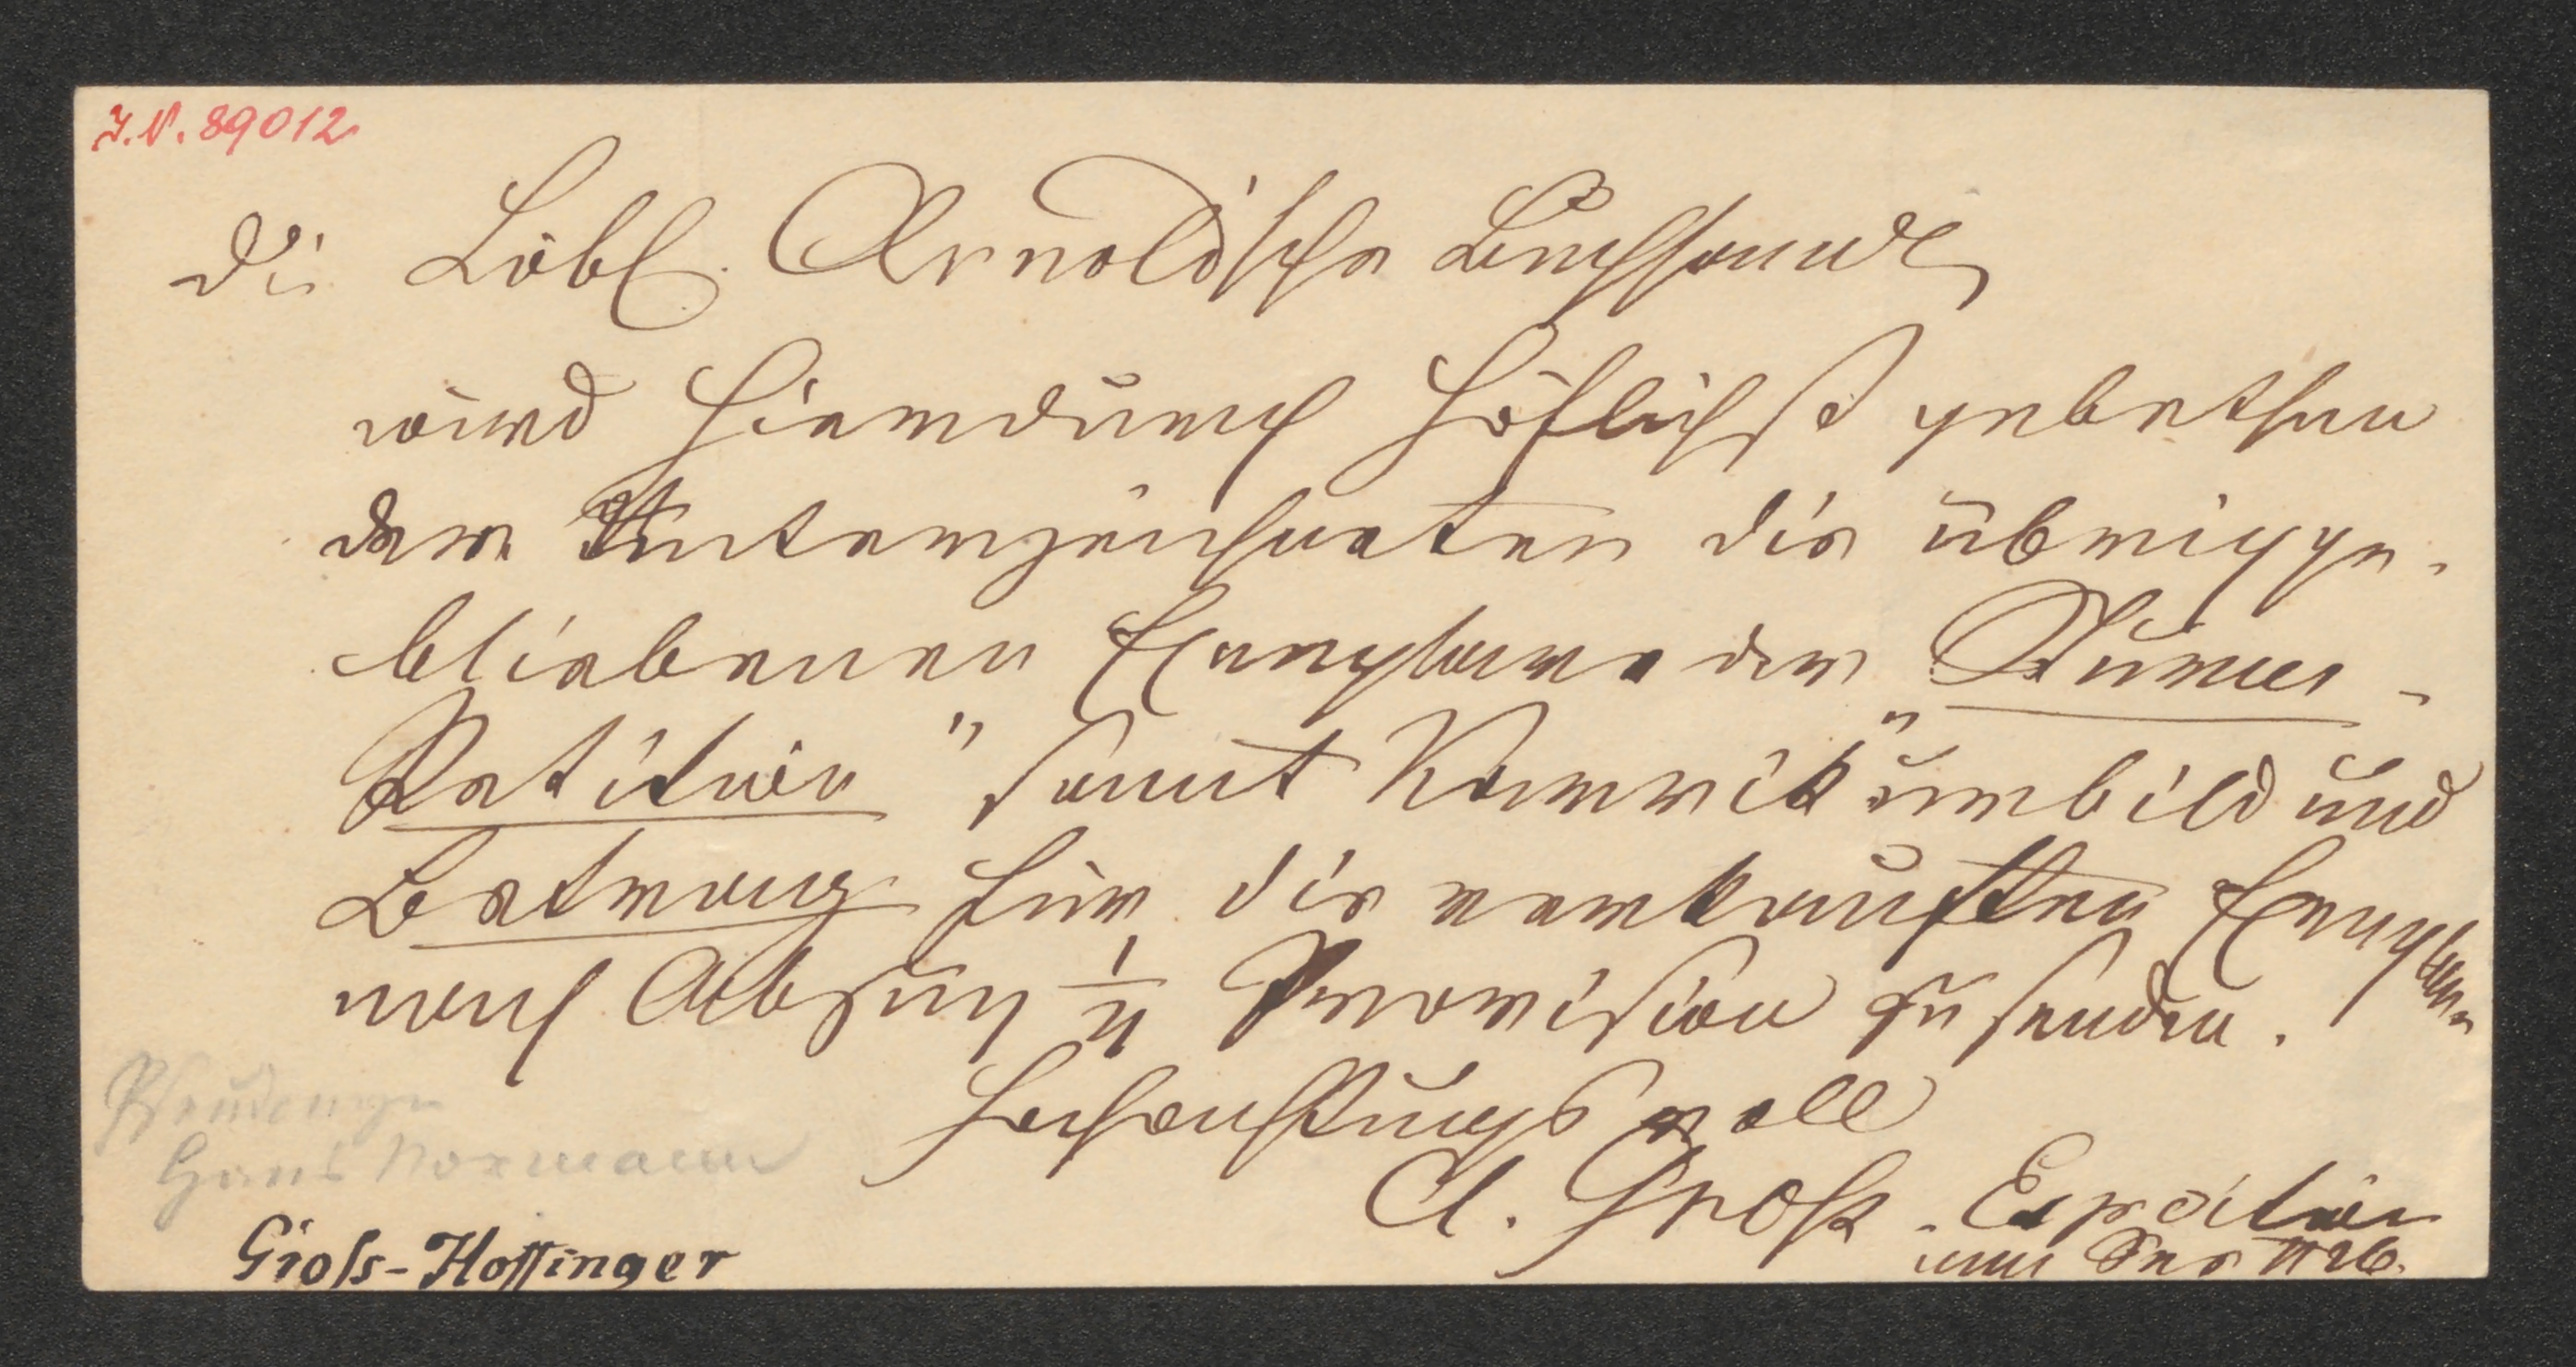 I.N. 89012
Die Löbl. Arnoldische Buchhandl
wird hierdurch höflichst gebethen
dem Unterzeichneten die übrigge-
bliebenen Exemplare der
samt und
Betrag für die verkauften Exemplare
nach Abzug 1/4 Provision zu senden.
Hochachtungsvoll
A. Groß
Pseudonym
Hans Normann
Gross-Hoffinger